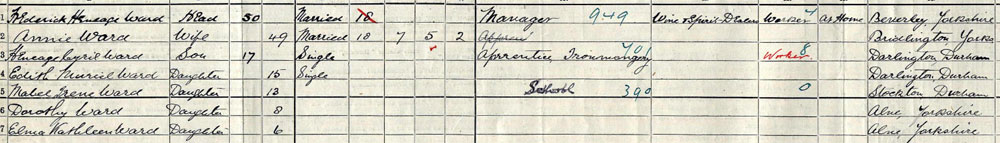 1 Frederick Heneage Ward Head 50 Married 18 Manager 949 Wine & Spirit Dealers Worker At Home Beverley, Yorkshire
2 Annie Ward Wife 49 Married 18 7 5 2 Bridlington Yorks
3 Heneage Cyril Ward Son 17 Single Apprentice Ironmongery 701 Worker 8 Darlington Durham
4 Edith Muriel Ward Daughter 15 Single Darlington Durham
5 Mabel Irene Ward Daughter 13 School 390 0 Stockton Durham
6 Dorothy Ward Daughter 8 Alne, Yorkshire
7 Elma Kathleen Ward Daughter 6 Alne, Yorkshire